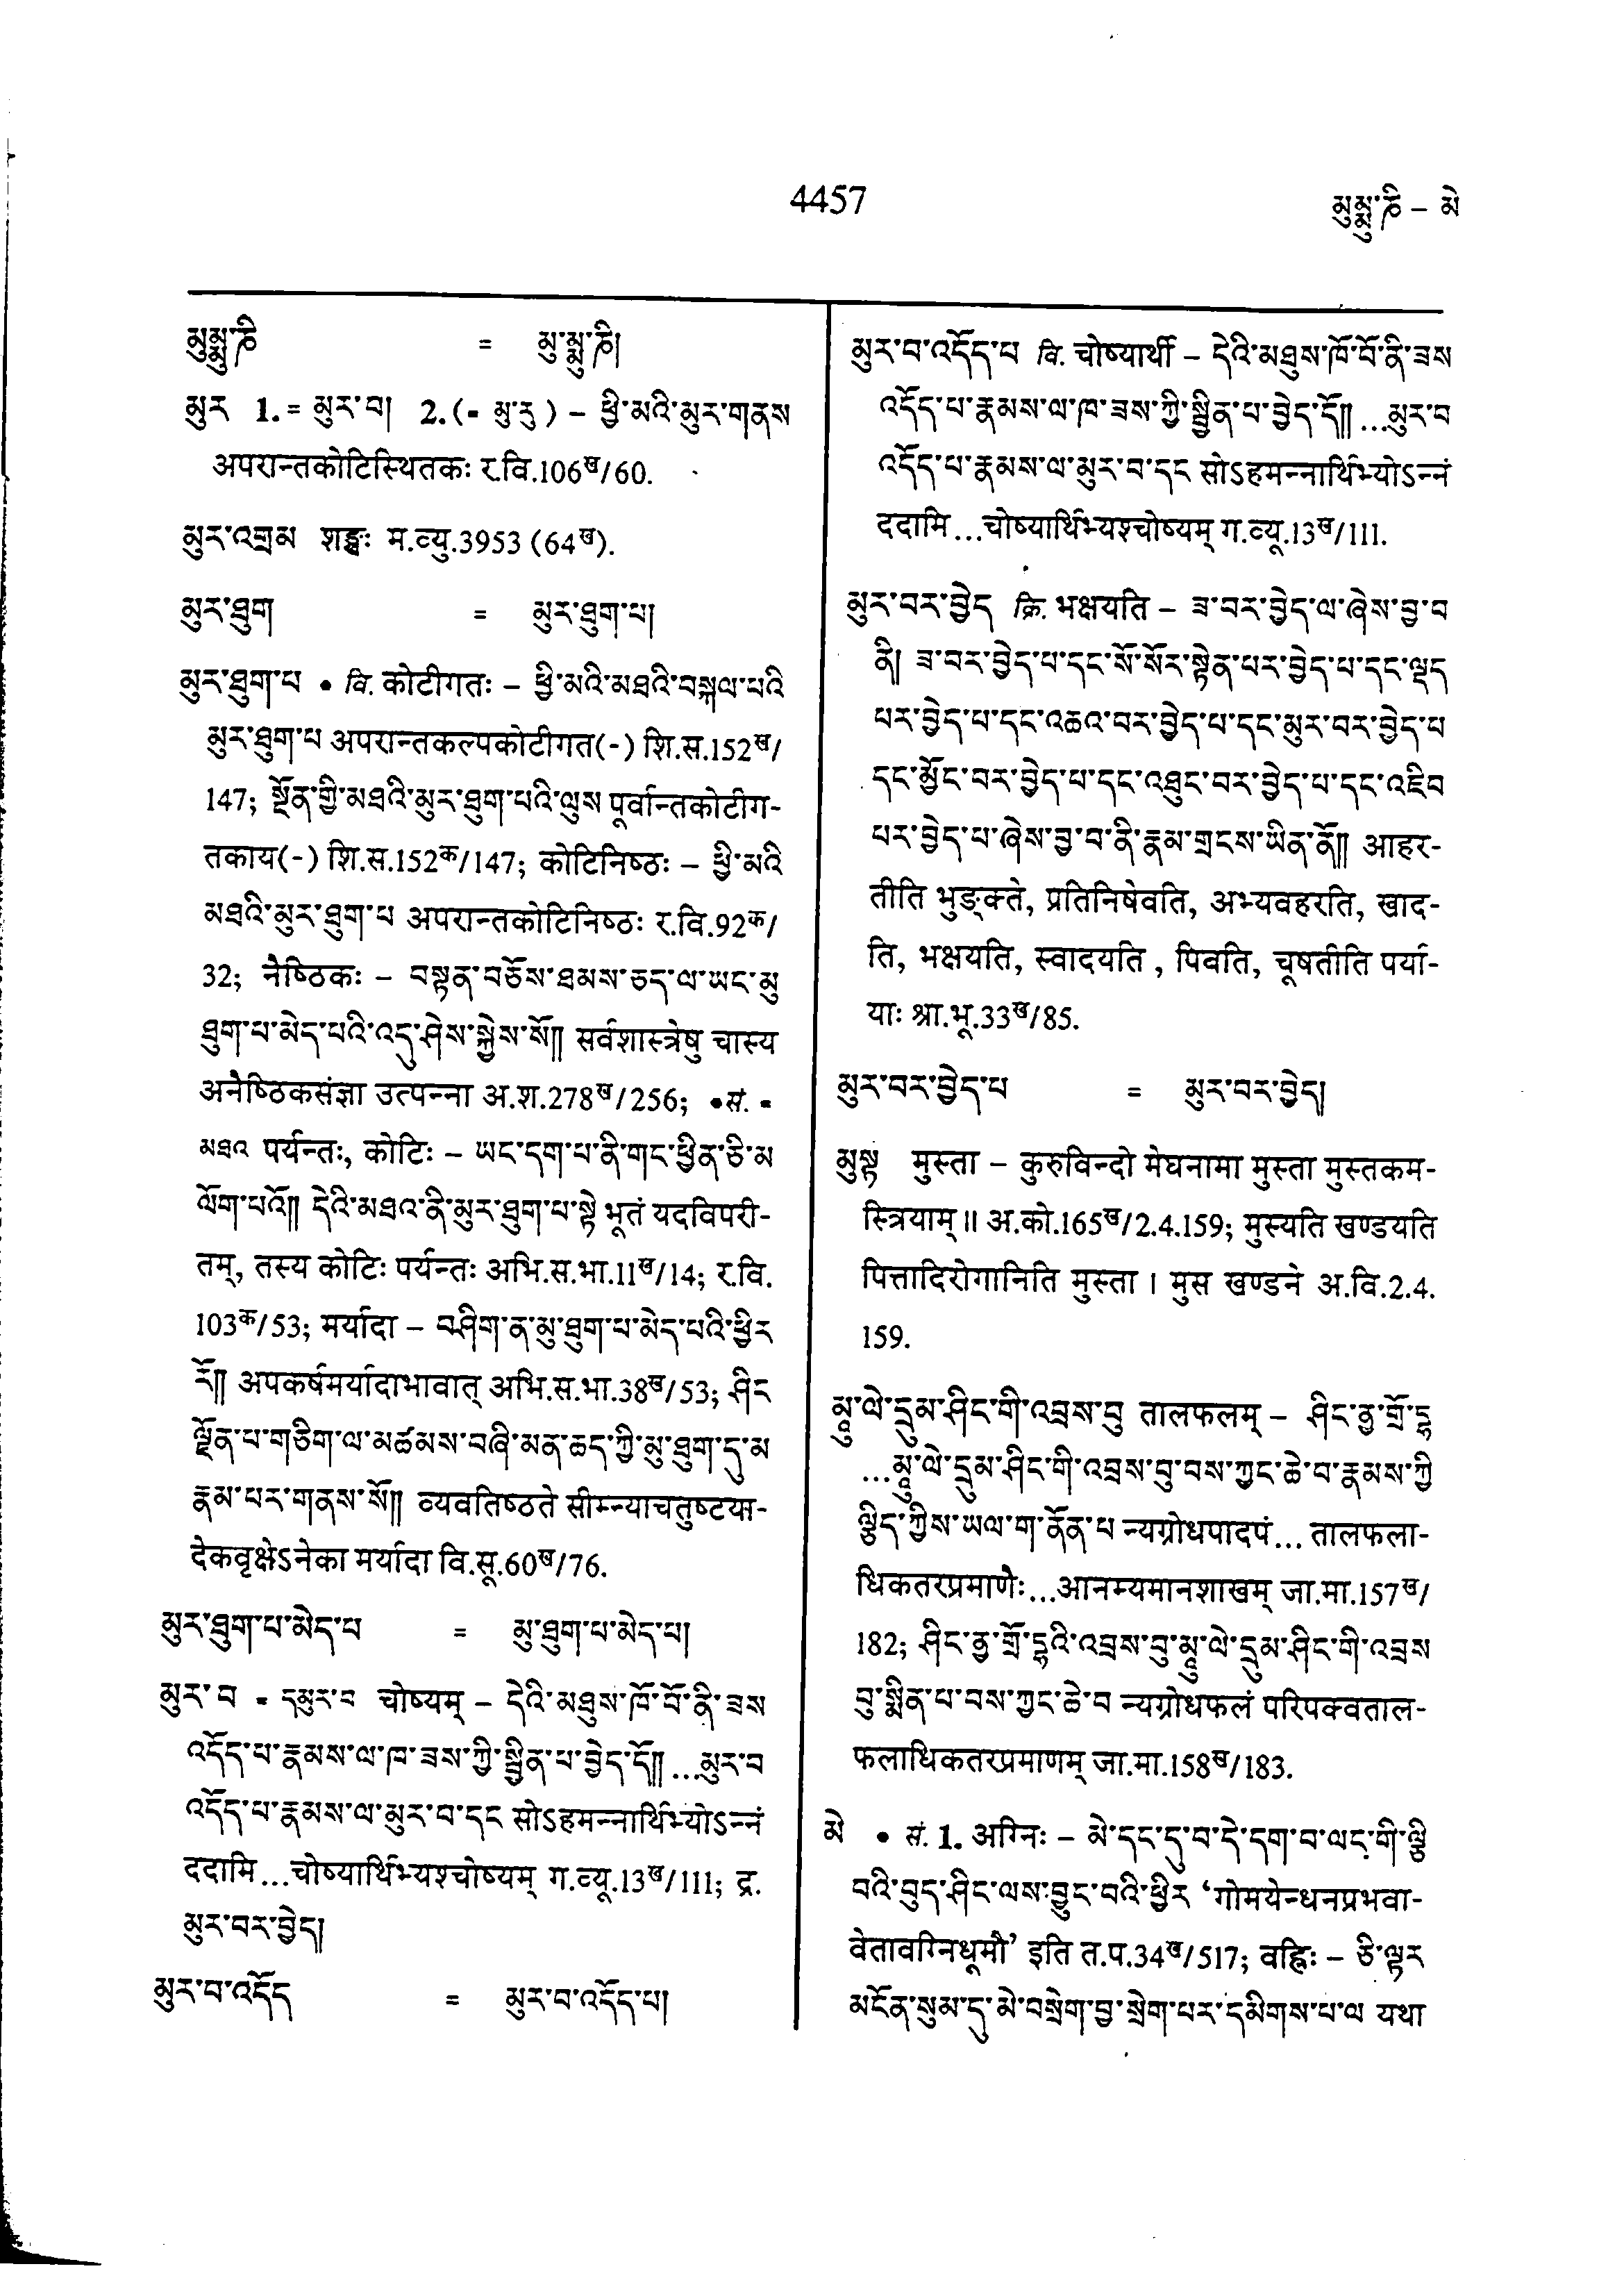 4457
མུམྨུ་ཎི – མེ
མུམྨུ་ཎི = མུ་མྨུ་ཎི།
མུར 1. = མུར་བ། 2. (= མུ་རུ ) – ཕྱི་མའི་མུར་གནས
अपरान्तकोटिस्थितकः र.वि.106ख/60.
མུར་འགྲམ शङ्खः म.व्यु.3953 (64ख).
མུར་ཐུག = མུར་ཐུག་པ།
མུར་ཐུག་པ • वि. कोटीगतः – ཕྱི་མའི་མཐའི་བསྐལ་པའི
མུར་ཐུག་པ अपरान्तकल्पकोटीगत(-) शि.स.152ख/
147; སྔོན་གྱི་མཐའི་མུར་ཐུག་པའི་ལུས पूर्वान्तकोटीग-
तकाय(-) शि.स.152क/147; कोटिनिष्ठः – ཕྱི་མའི
མཐའི་མུར་ཐུག་པ अपरान्तकोटिनिष्ठः र.वि.92क/
32; नैष्ठिकः – བསྟན་བཅོས་ཐམས་ཅད་ལ་ཡང་མུ
ཐུག་པ་མེད་པའི་འདུ་ཤེས་སྐྱེས་སོ།། सर्वशास्त्रेषु चास्य
अनैष्ठिकसंज्ञा उत्पन्ना अ.श.278ख/256; •सं. =
མཐའ पर्यन्तः, कोटिः – ཡང་དག་པ་ནི་གང་ཕྱིན་ཅི་མ
ལོག་པའོ།། དེའི་མཐའ་ནི་མུར་ཐུག་པ་སྟེ भूतं यदविपरी-
तम्, तस्य कोटिः पर्यन्तः अभि.स.भा.11ख/14; र.वि.
103क/53; मर्यादा – བཤིག་ན་མུ་ཐུག་པ་མེད་པའི་ཕྱིར
རོ།། अपकर्षमर्यादाभावात् अभि.स.भा.38ख/53; ཤིང
ལྗོན་པ་གཅིག་ལ་མཚམས་བཞི་མན་ཆད་ཀྱི་མུ་ཐུག་དུ་མ
རྣམ་པར་གནས་སོ།། व्यवतिष्ठते सीम्न्याचतुष्टया-
देकवृक्षेऽनेका मर्यादा वि.सू.60ख/76.
མུར་ཐུག་པ་མེད་པ = མུ་ཐུག་པ་མེད་པ།
མུར་བ = དམུར་བ चोष्यम् – དེའི་མཐུས་ཁོ་བོ་ནི་ཟས
འདོད་པ་རྣམས་ལ་ཁ་ཟས་ཀྱི་སྦྱིན་པ་བྱེད་དོ།། ...མུར་བ
འདོད་པ་རྣམས་ལ་མུར་བ་དང सोऽहमन्नार्थिभ्योऽन्नं
ददामि...चोष्यार्थिभ्यश्चोष्यम् ग.व्यू.13ख/111; द्र.
མུར་བར་བྱེད།
མུར་བ་འདོད = མུར་བ་འདོད་པ།
མུར་བ་འདོད་པ वि. चोष्यार्थी – དེའི་མཐུས་ཁོ་བོ་ནི་ཟས
འདོད་པ་རྣམས་ལ་ཁ་ཟས་ཀྱི་སྦྱིན་པ་བྱེད་དོ།། ...མུར་བ
འདོད་པ་རྣམས་ལ་མུར་བ་དང सोऽहमन्नार्थिभ्योऽन्नं
ददामि...चोष्यार्थिभ्यश्चोष्यम् ग.व्यू.13ख/111.
མུར་བར་བྱེད क्रि. भक्षयति – ཟ་བར་བྱེད་ལ་ཞེས་བྱ་བ
ནི། ཟ་བར་བྱེད་པ་དང་སོ་སོར་སྟེན་པར་བྱེད་པ་དང་ལྡད
པར་བྱེད་པ་དང་འཆའ་བར་བྱེད་པ་དང་མུར་བར་བྱེད་པ
དང་མྱོང་བར་བྱེད་པ་དང་འཐུང་བར་བྱེད་པ་དང་འཇིབ
པར་བྱེད་པ་ཞེས་བྱ་བ་ནི་རྣམ་གྲངས་ཡིན་ནོ།། आहर-
तीति भुङ्क्ते, प्रतिनिषेवति, अभ्यवहरति, खाद-
ति, भक्षयति, स्वादयति , पिवति, चूषतीति पर्या-
याः श्रा.भू.33ख/85.
མུར་བར་བྱེད་པ = མུར་བར་བྱེད།
མུསྟ मुस्ता – कुरुविन्दो मेघनामा मुस्ता मुस्तकम-
स्त्रियाम्॥ अ.को.165ख/2.4.159; मुस्यति खण्डयति
पित्तादिरोगानिति मुस्ता । मुस खण्डने अ.वि.2.4.
159.
མཱུ་ལེ་དྲུམ་ཤིང་གི་འབྲས་བུ तालफलम् – ཤིང་ནྱ་གྲོ་དྷ
...མཱུ་ལེ་དྲུམ་ཤིང་གི་འབྲས་བུ་བས་ཀྱང་ཆེ་བ་རྣམས་ཀྱི
ལྕིད་ཀྱིས་ཡལ་ག་ནོན་པ न्यग्रोधपादपं... तालफला-
धिकतरप्रमाणैः...आनम्यमानशाखम् जा.मा.157ख/
182; ཤིང་ནྱ་གྲོ་དྷའི་འབྲས་བུ་མཱུ་ལེ་དྲུམ་ཤིང་གི་འབྲས
བུ་སྨིན་པ་བས་ཀྱང་ཆེ་བ न्यग्रोधफलं परिपक्वताल-
फलाधिकतरप्रमाणम् जा.मा.158ख/183.
མེ • सं. 1. अग्निः – མེ་དང་དུ་བ་དེ་དག་བ་ལང་གི་ལྕི
བའི་བུད་ཤིང་ལས་བྱུང་བའི་ཕྱིར ‘गोमयेन्धनप्रभवा-
वेतावग्निधूमौ’ इति त.प.34ख/517; वह्निः – ཅི་ལྟར
མངོན་སུམ་དུ་མེ་བསྲེག་བྱ་སྲེག་པར་དམིགས་པ་ལ यथा